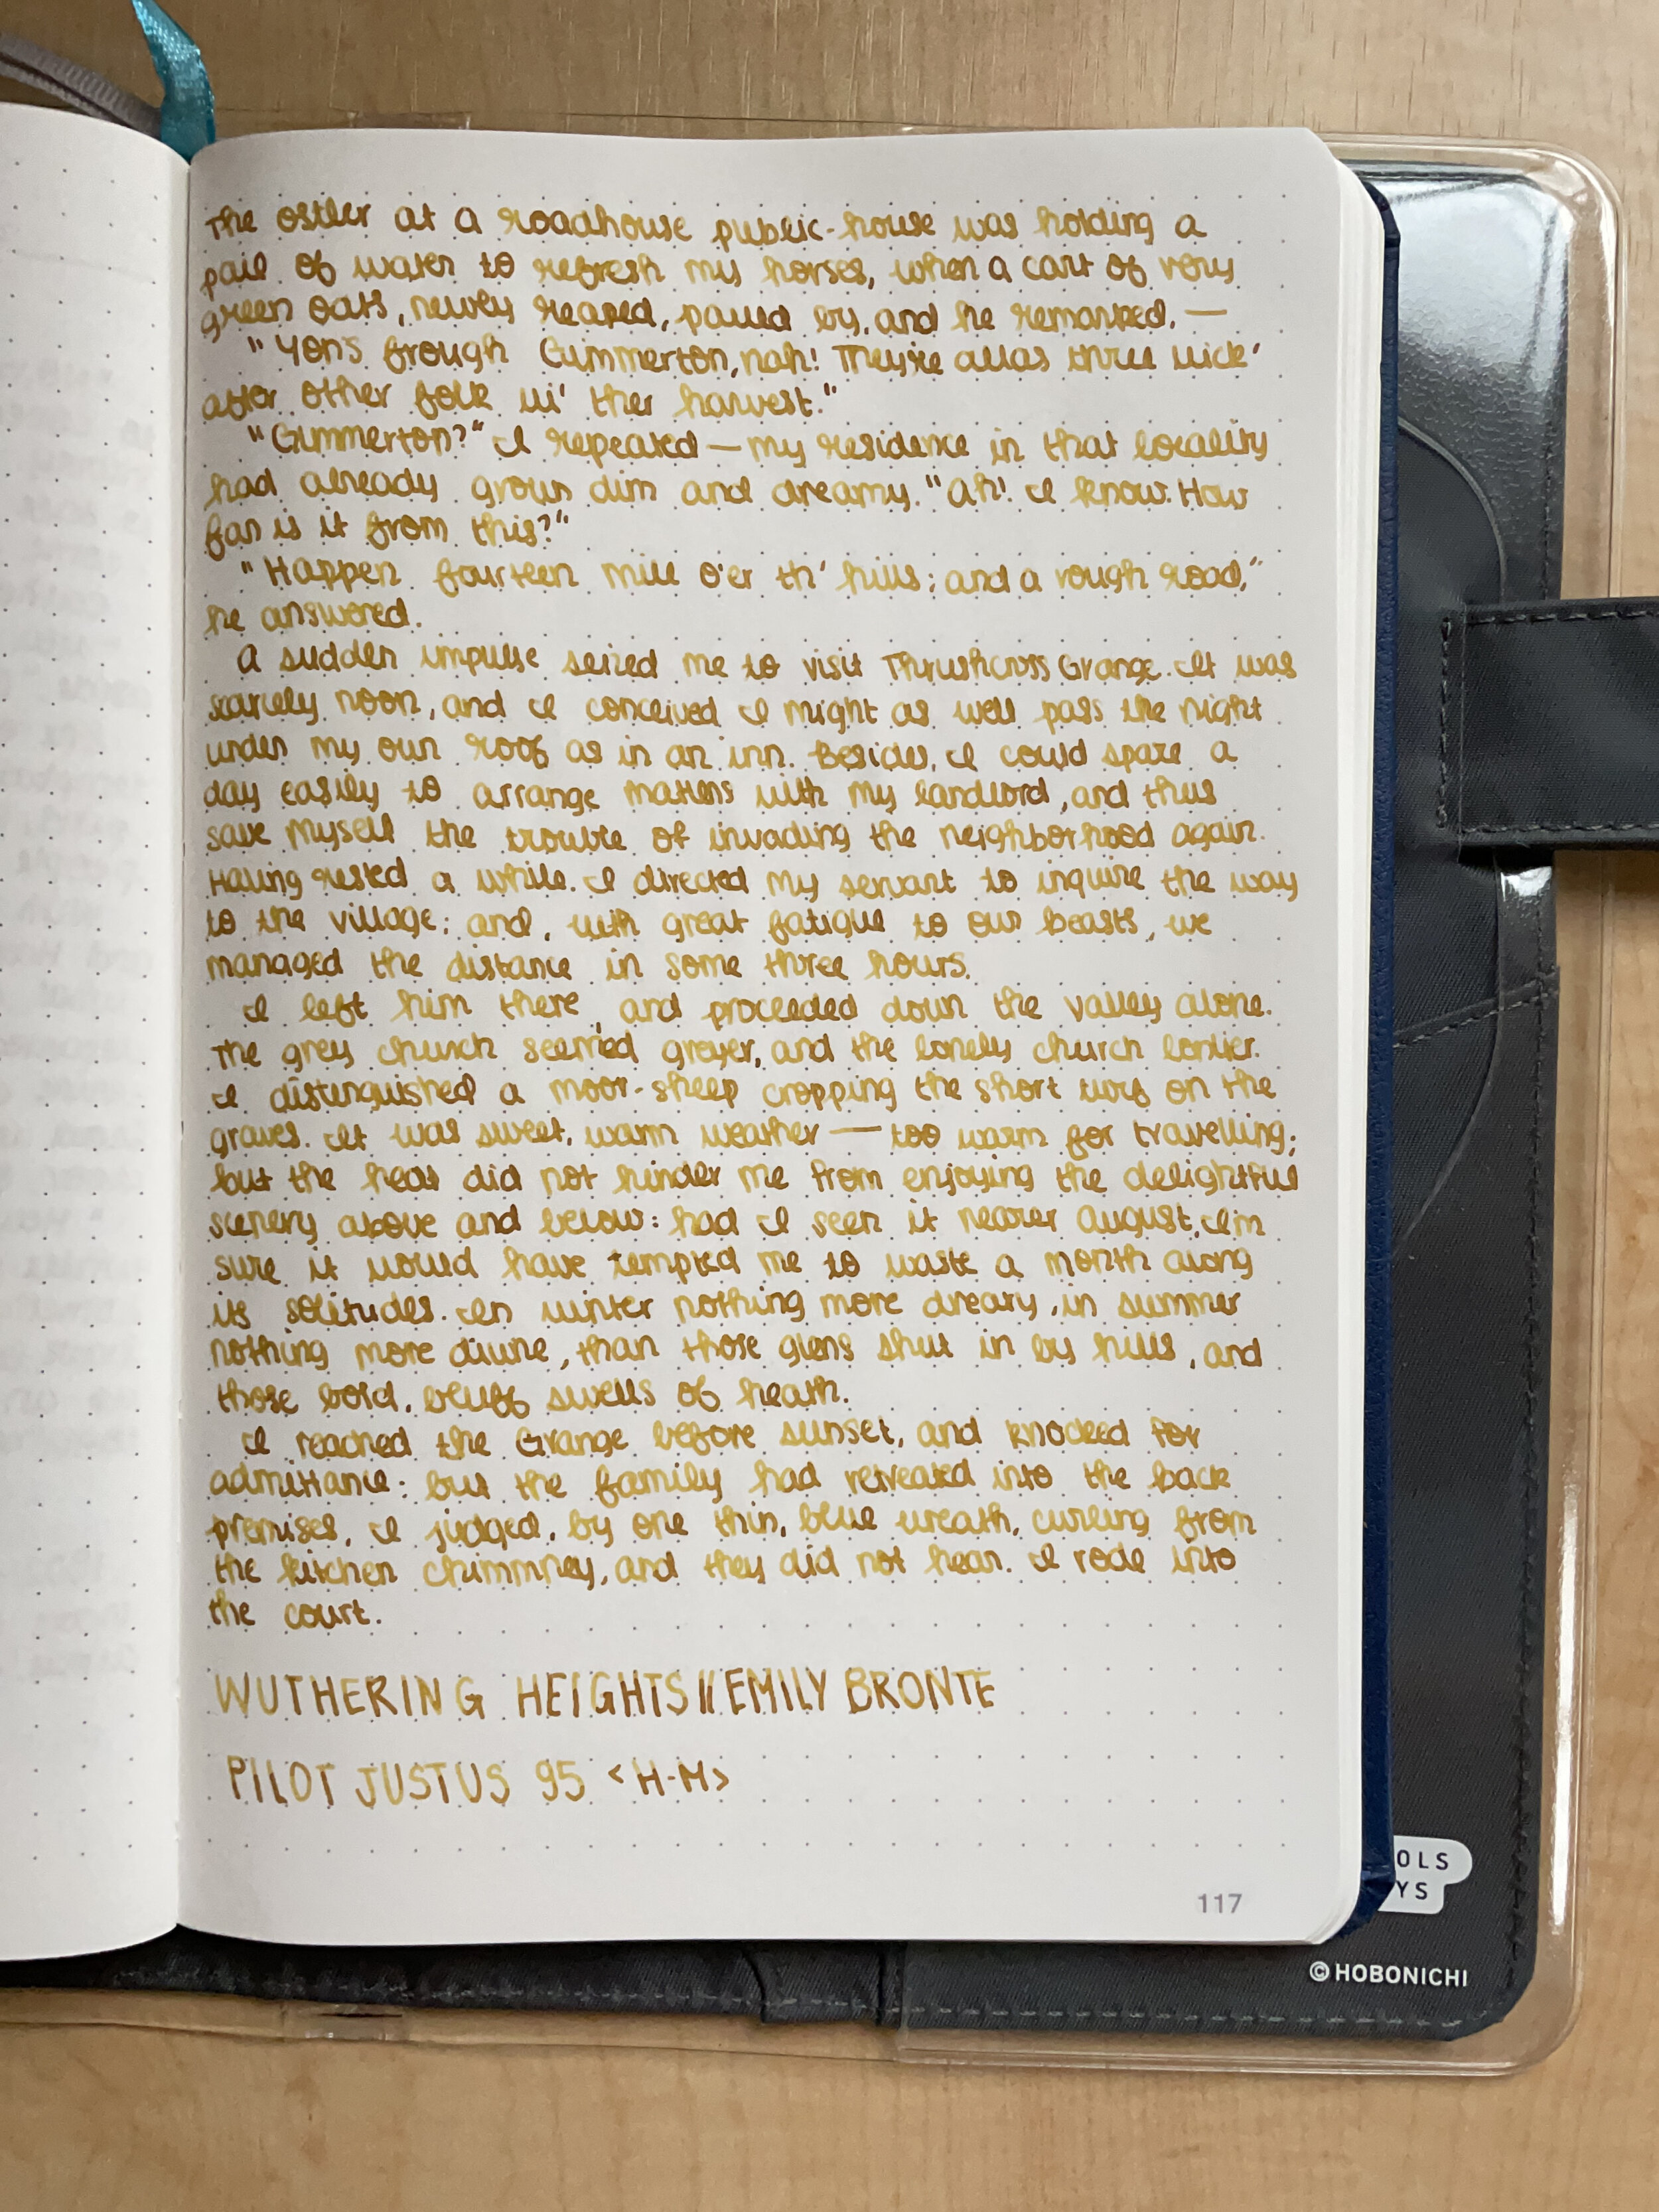 The ostler at a roadhouse public-house was holding a
pail of water to refresh my horses, when a cart of very
green oats, newly reaped, passed by, and he remarked, —
"Yon's frough Gimmerton, nah! They're allas three wick'
after other folk wi' ther harvest."
"Gimmerton?" I repeated — my residence in that locality
had already grown dim and dreamy. "Ah! I know. How
far is it from this?"
"Happen fourteen mile o'er th' hills; and a rough road,"
he answered.
A sudden impulse seized me to visit Thrushcross Grange. It was
scarcely noon, and I conceived I might as well pass the night
under my own roof as in an inn. Besides, I could spare a
day easily to arrange matters with my landlord, and thus
save myself the trouble of invading the neighborhood again.
Having rested a while. I directed my servant to inquire the way
to the village; and, with great fatigue to our beasts, we
managed the distance in some three hours.
I left him there, and proceeded down the valley alone.
The grey church seemed greyer, and the lonely church lonlier.
I distinguished a moor-sheep cropping the short turf on the
graves. It was sweet, warm weather — too warm for travelling;
but the heat did not hinder me from enjoying the delightful
scenery above and below: had I seen it nearer August, I'm
sure it would have tempted me to waste a month along
its solitudes. In winter nothing more dreary, in summer
nothing more divine, than those glens shut in by hills, and
those bold, bluff swells of heath.
I reached the Grange before sunset, and knocked for
admittance: but the family had retreated into the back
premises, I judged, by one thin, blue wreath, curling from
the kitchen chimmney, and they did not hear. I rode into
the court.
WUTHERING HEIGHTS // EMILY BRONTE
PILOT JUSTUS 95 <H-M>
117
OLS
YS
© HOBONICHI